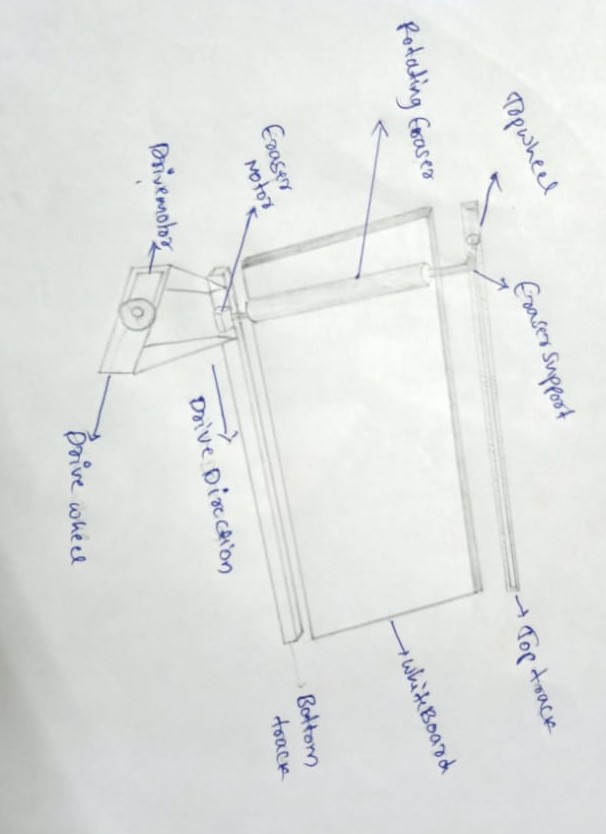 Topwheel
Eraser support
Top track
Rotating Eraser
WhiteBoard
Eraser
Motor
Bottom
track
Drive Direction
Drivemotor
Drive wheel